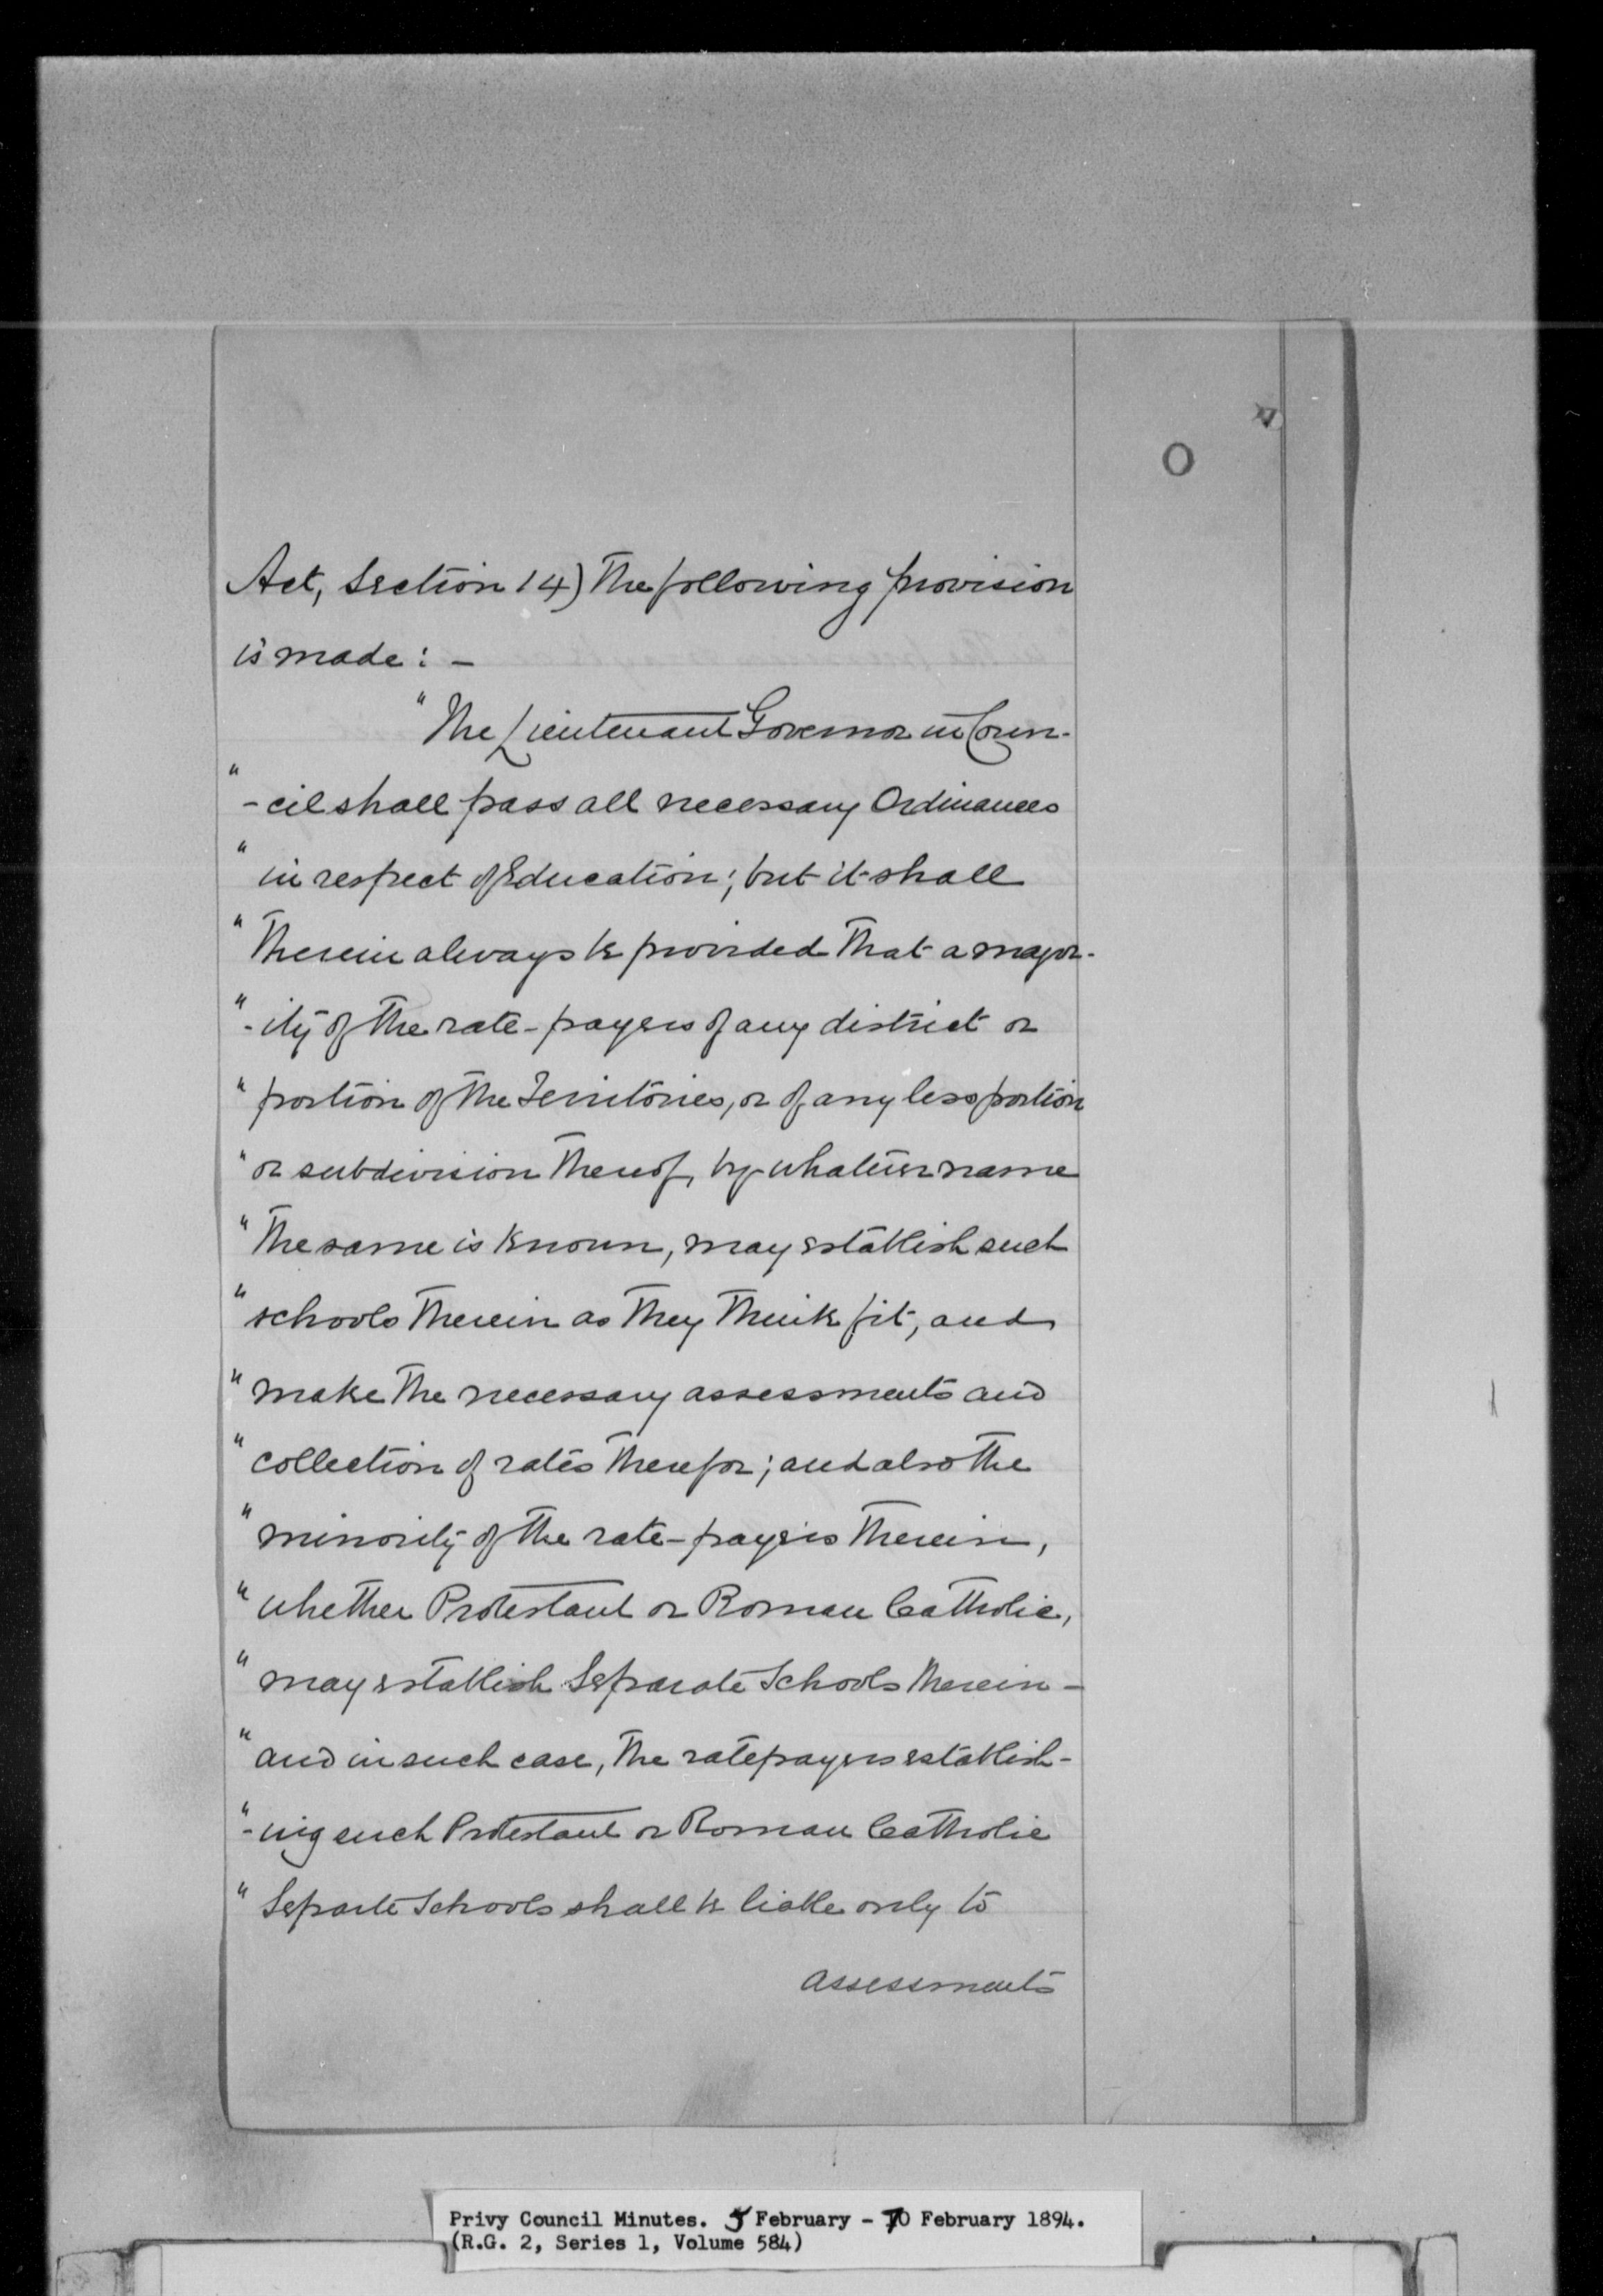 O
Act, Section 14) the following provision
is made: -
"The Lieutenant Governor in Coun-
"-cil shall pass all necessary Ordinances
"in respect of Education; but it shall
"therein always be provided that a major-
"-ity of the rate-payers of any district or
"portion of the Territories, or of any less portion
"or subdivision thereof, by whatever name
"the same is known, may establish such
"schools therein as they think fit, and
"make the necessary assessments and
"collection of rates therefor; and also the
"minority of the rate-payers therein,
"whether Protestant or Roman Catholic,
"may establish Separate Schools therein -
"and in such case, the ratepayers establish-
"-ing such Protestant or Roman Catholic
"Separate Schools shall be liable only to
assessments
Privy Council Minutes. 5 February - 70 February 1894.
(R.G. 2, Series 1, Volume 584)